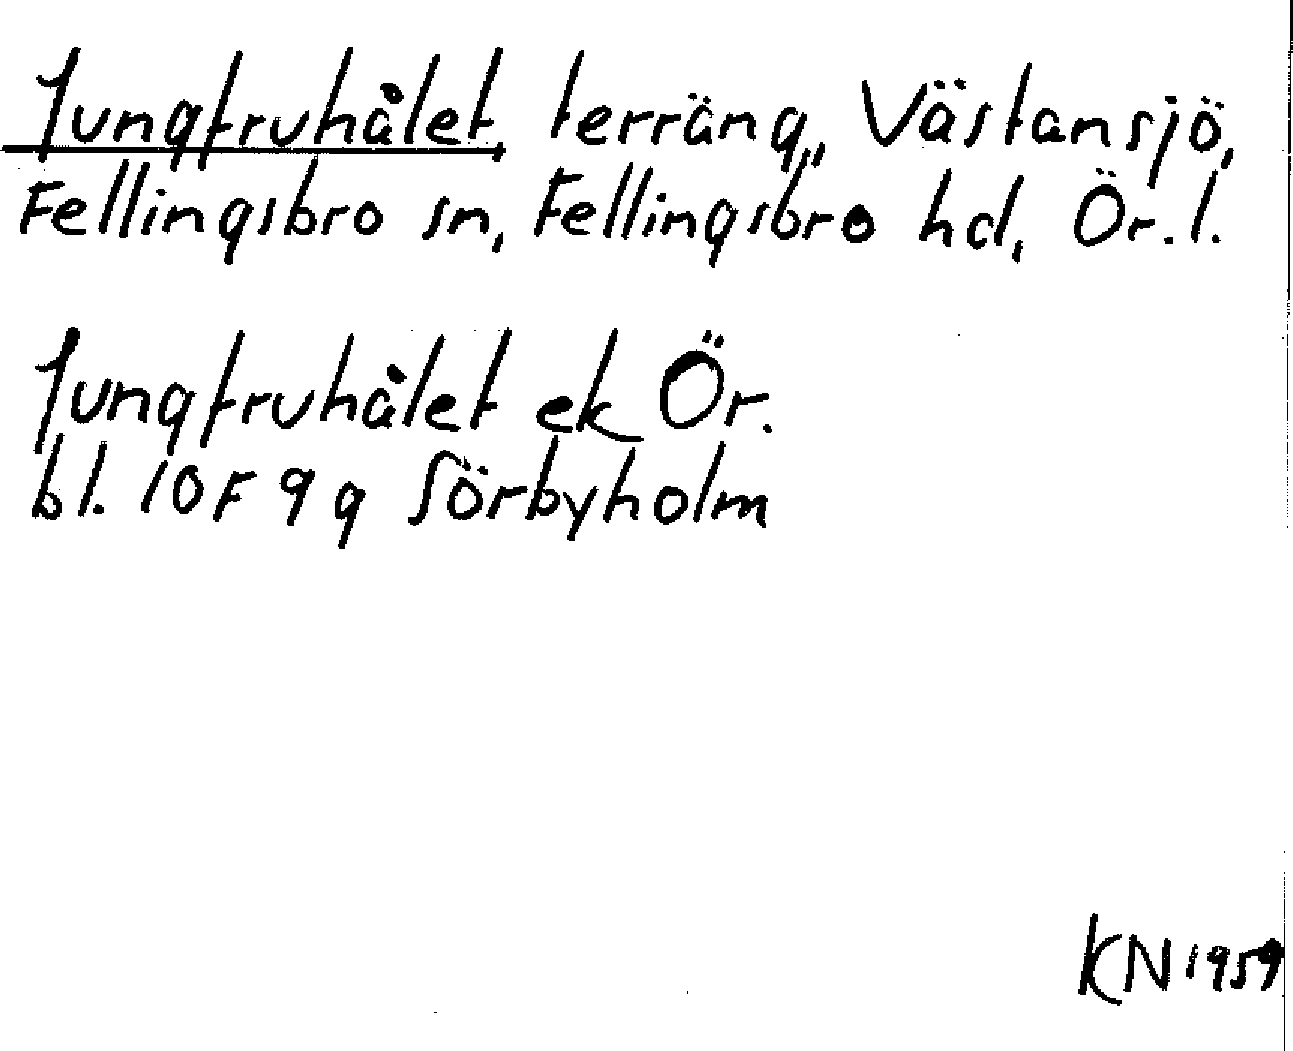 Jungfruhålet, terräng,, Västansjö,
Fellingsbro sn, Fellingsbro hd, Ör.l.
Jungfruhålet ek Ör.
bl. 10F 9g Sörbyholm
KN 1959